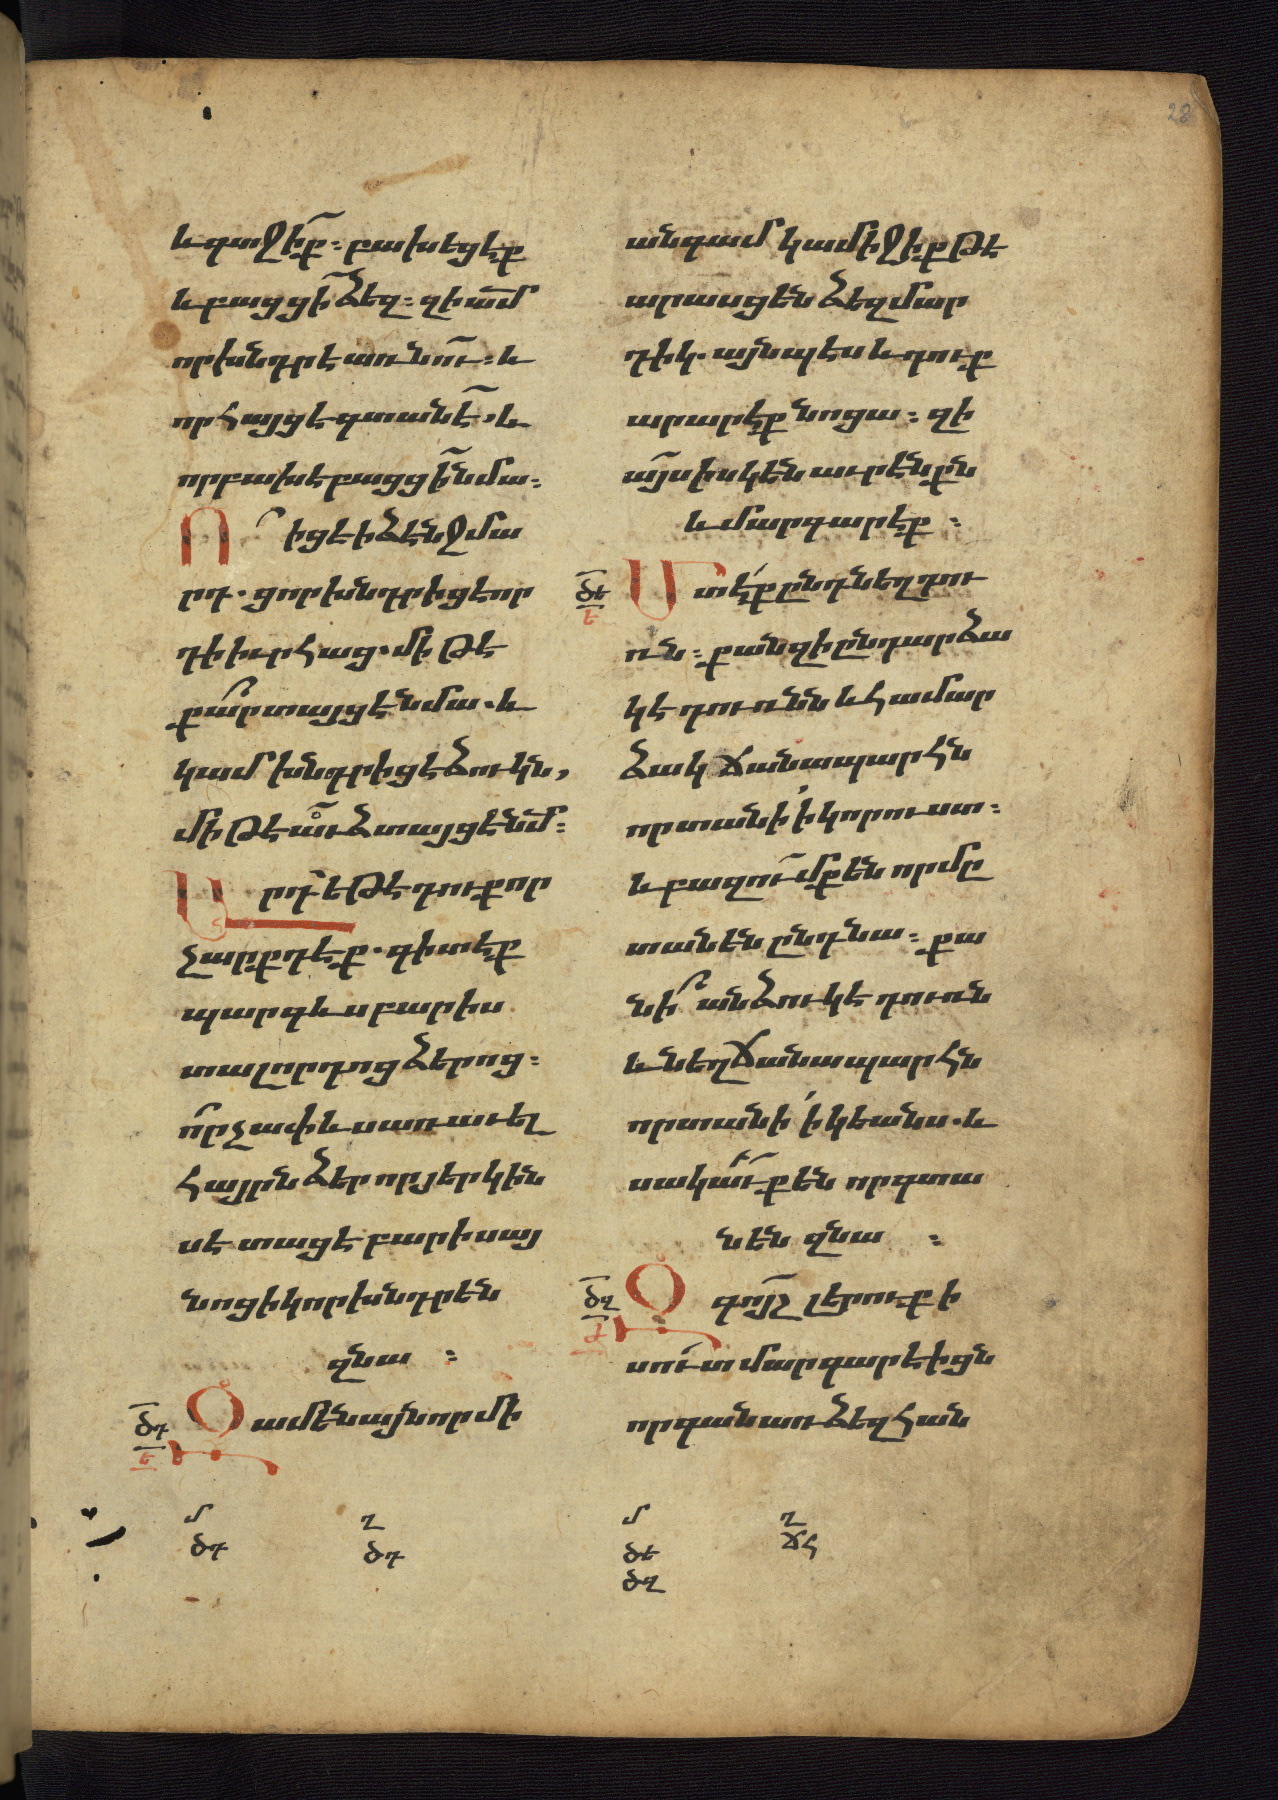 28
և գտջիք։ բախեցէք
և բացցի ձեզ։ զի ամ
որ խնդրէ առնու։ և
որ հայցէ գտանէ, և
որ բախէ բացցի նմա։
Ո՞ իցէ ի ձէնջ մա
րդ. ցոր խնդրիցէ որ
դի իւր հաց. մի թէ
քար տայցէ նմա. և
կամ խնդրիցէ ձուկն,
մի թէ աւձ տայցէ նմ։
Արդ եթէ դուք որ
չարքդ էք. գիտէք
պարգևս բարիս
տալ որդոց ձերոց։
որչափ ևս առաւել
հայրն ձեր որ յերկին
ս է տացէ բարիս այ
նոցիկ որ խնդրեն
զնա ։
ծդ
ե
Զ ամենայն որ մի
անգամ կամիջիք թէ
արասցեն ձեզ մար
դիկ. այնպէս և դուք
արարէք նոցա։ զի
այս իսկ են աւրէնքն
և մարգարէք ։
ծե
ե
Մտէք ընդ նեղ դու
ռն։ քանզի ընդարձա
կ է դուռնն և համար
ձակ ճանապարհն
որ տանի ի կորուստ։
և բազումք են որ մը
տանեն ընդ նա։ քա
նի՜ անձուկ է դուռն
և նեղ ճանապարհն
որ տանի ի կեանս. և
սակաւք են որ գտա
նեն զնա ։
ծզ
Զգոյշ լերուք ի
սուտ մարգարէիցն
որ գան առ ձեզ հան
մ
ծդ
ղ
ծդ
մ
ծե
ծզ
ղ
ճհ